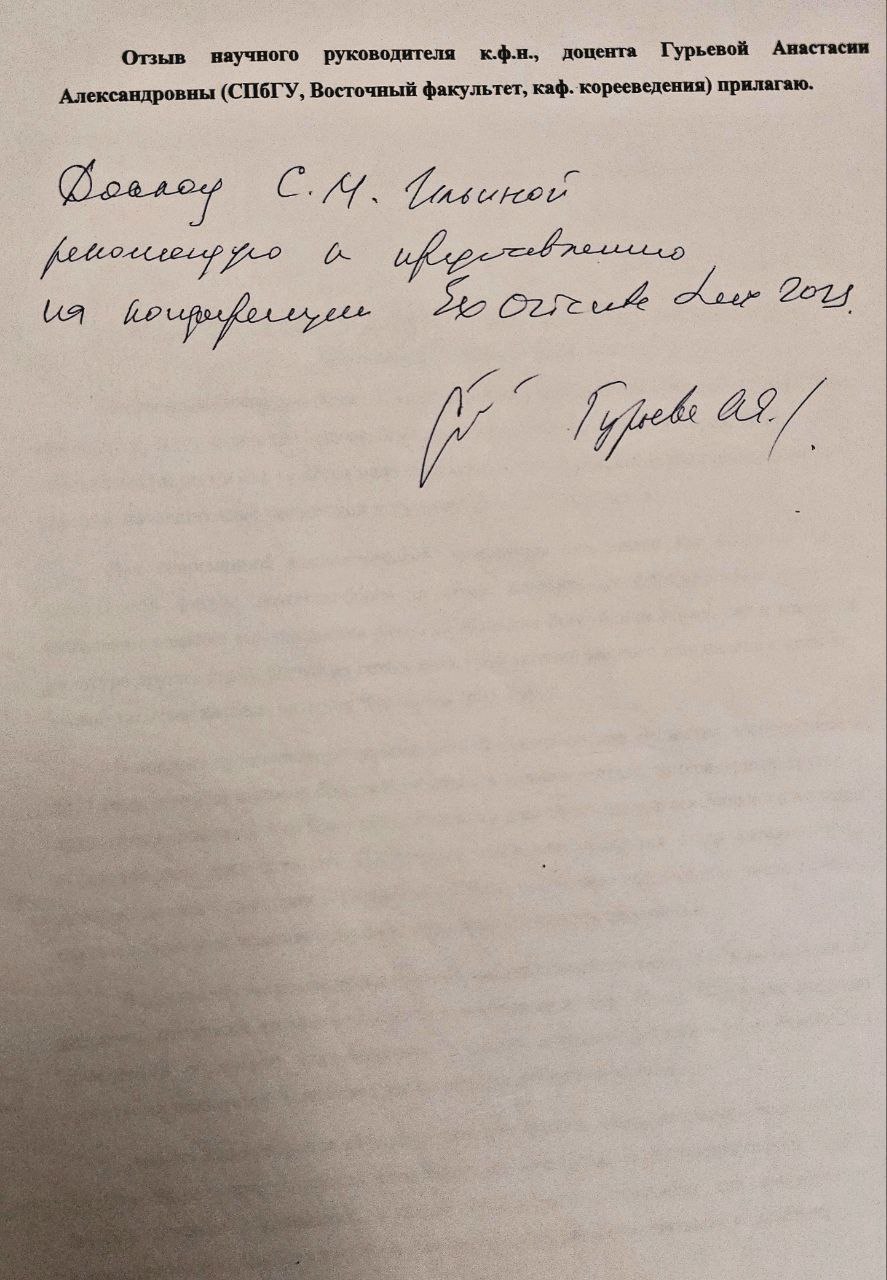 Отзыв научного руководителя к.ф.н., доцента Гурьевой Анастасии
Александровны (СПбГУ, Восточный факультет, каф. корееведения) прилагаю.
Доклад С. М. Ильиной
рекомендую к представлению
на конференции Ex Oriente Lux
Гурьева А.А. /